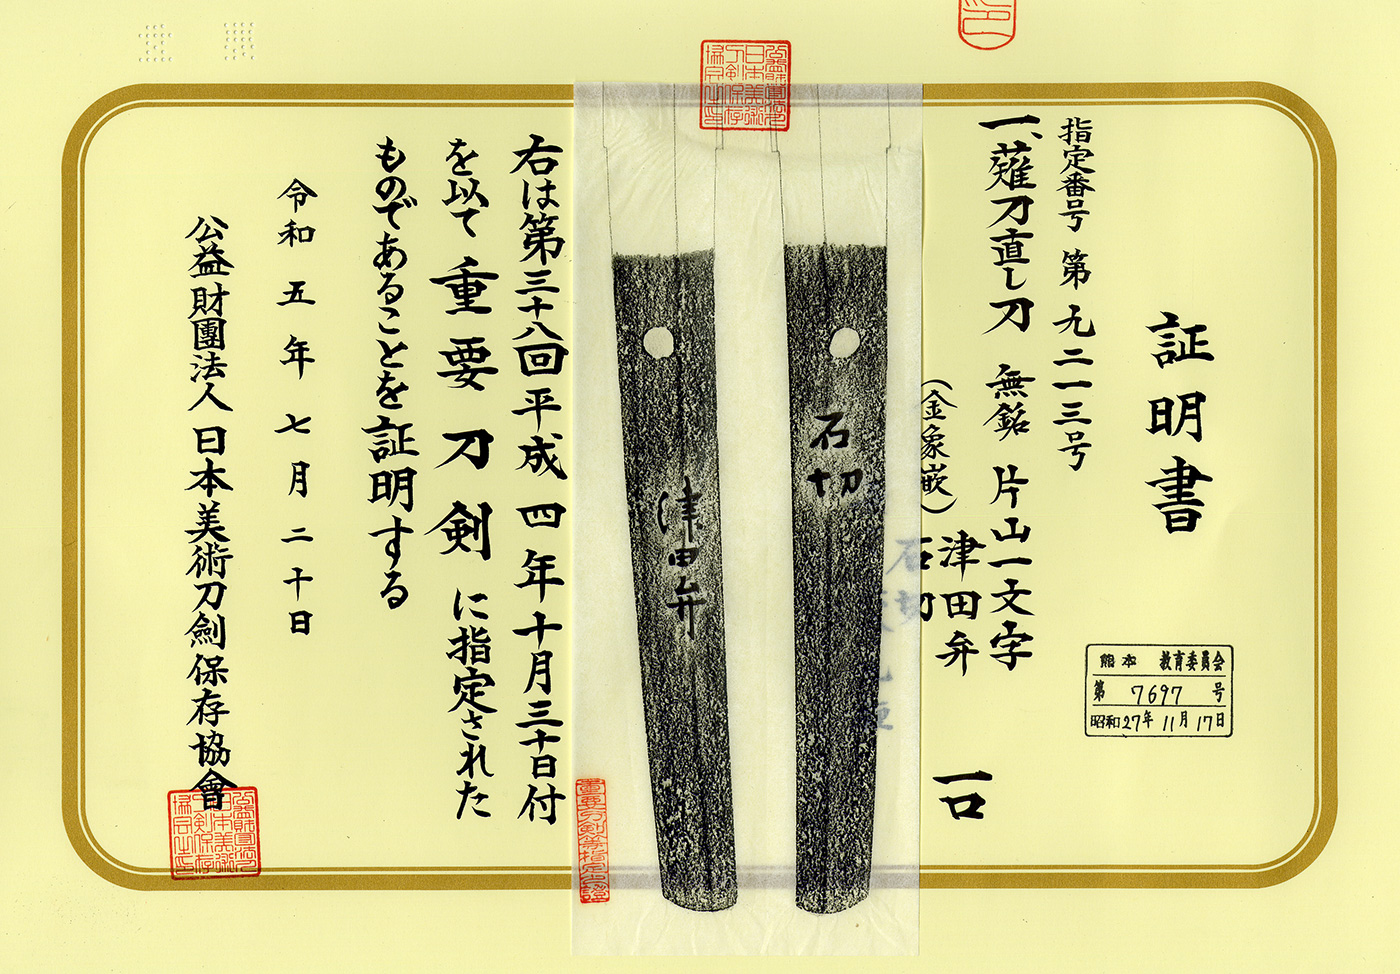 証明書
指定番号 第九二一三号
一、薙刀直し刀 無銘 片山一文字
(金象嵌) 津田弁
石切
一口
熊本 教育委員会
第 7697 号
昭和27年 11月 17日
石切
津田弁
右は第三十八回平成四年十月三十日付
を以て重要刀剣に指定された
ものであることを証明する
令和五年七月二十日
公益財團法人日本美術刀劍保存協會